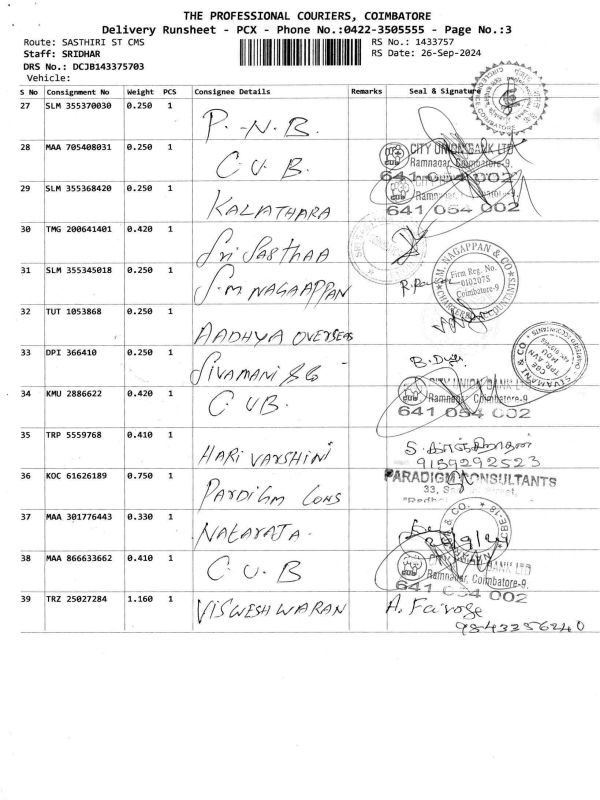 THE PROFESSIONAL COURIERS, COIMBATORE
Delivery Runsheet - PCX - Phone No.:0422-3505555 - Page No.:3
Route: SASTHIRI ST CMS RS No.: 1433757
Staff: SRIDHAR RS Date: 26-Sep-2024
DRS No.: DCJB143375703
Vehicle:
S No Consignment No Weight PCS Consignee Details Remarks Seal & Signature
27 SLM 355370030 0.250 1 P.N.B.
28 MAA 705408031 0.250 1 C.U.B. CITY UNION BANK LTD
Ramnagar, Coimbatore-9.
641 054 002
29 SLM 355368420 0.250 1 KALATHARA CITY UNION
641 054 002
30 TMG 200641401 0.420 1 Sri Sasthaa
31 SLM 355345018 0.250 1 S.M NAGAAPPAN S.M. NAGAPPAN & CO
Firm Reg. No.
010207S
Coimbatore-9
CHARTERED ACCOUNTANTS
32 TUT 1053868 0.250 1 AADHYA OVERSEAS
33 DPI 366410 0.250 1 SIVAMANI & CO SIVAMANI & CO.
34 KMU 2886622 0.420 1 CUB. CITY UNION BANK LTD
Ramnagar, Coimbatore-9.
641 054 002
35 TRP 5559768 0.410 1 HARI VARSHINI
9159292523
36 KOC 61626189 0.750 1 PARDIGM CONS PARADIGM CONSULTANTS
33,
37 MAA 301776443 0.330 1 NATARATA. & CO.
38 MAA 866633662 0.410 1 C.U.B BANK LTD
Ramnagar, Coimbatore-9.
641 054 002
39 TRZ 25027284 1.160 1 VISWESHWARAN A. Fairoze
9543356240